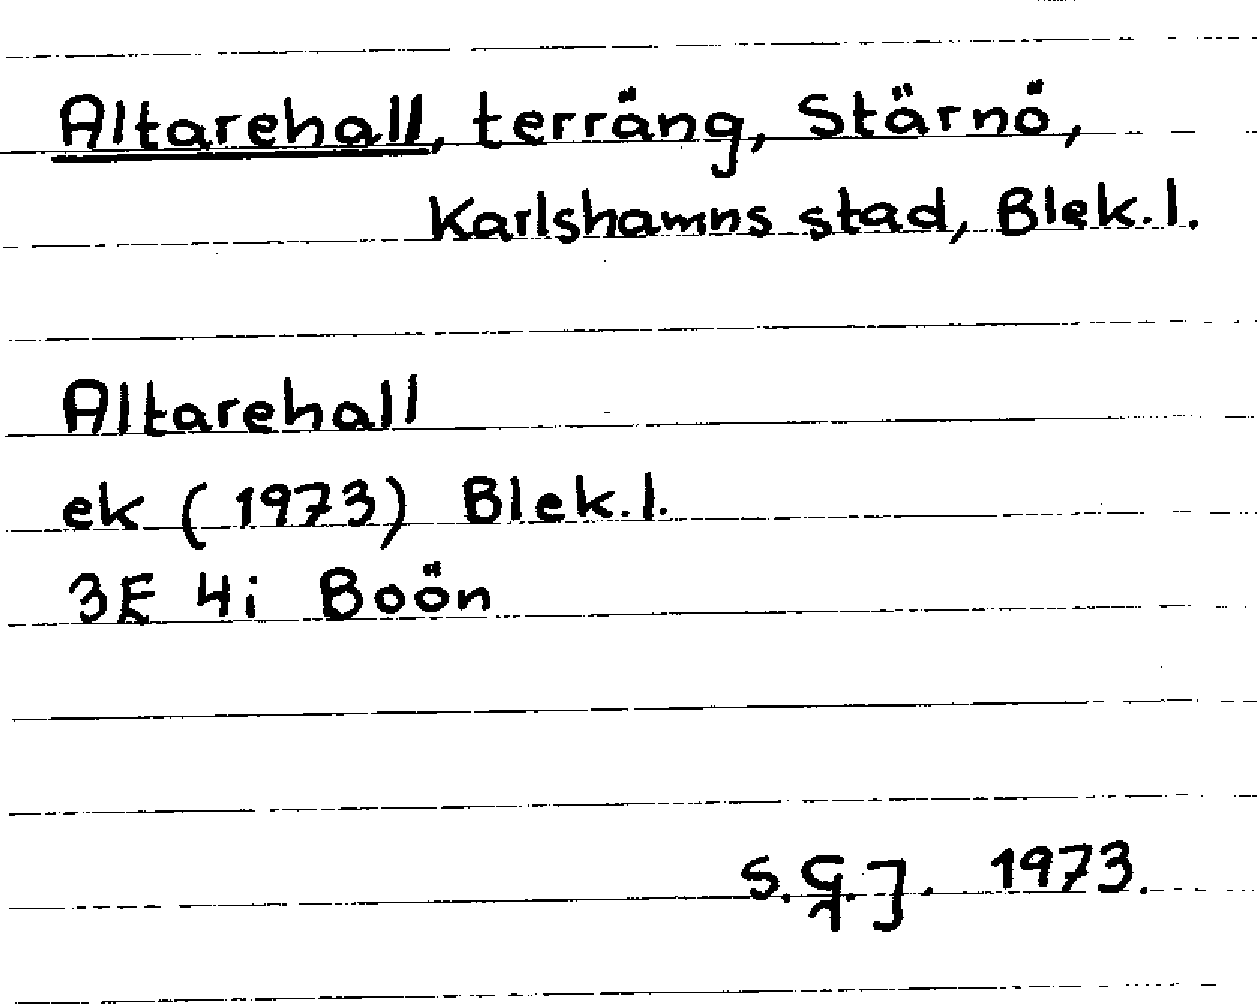 Altarehall, terräng, Stärnö,
Karlshamns stad, Blek.l.
Altarehall
ek (1973) Blek.l.
3E 4i Boön
S.G.J. 1973.